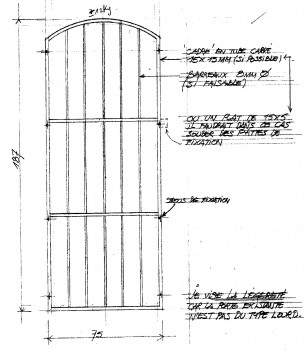 ± 12kg
CADRE EN TUBE CARRE
15 X 15 MM (SI POSSIBLE)
BARREAUX 8MM Ø
(SI FAISABLE)
OU UN PLAT DE 15X5
IL FAUDRAIT DANS CE CAS
SOUDER DES PATTES DE
FIXATION
187
FIXATION
JE VISE LA LÉGERETÉ
CAR LA PORTE EXISTANTE
N'EST PAS DU TYPE LOURD.
75